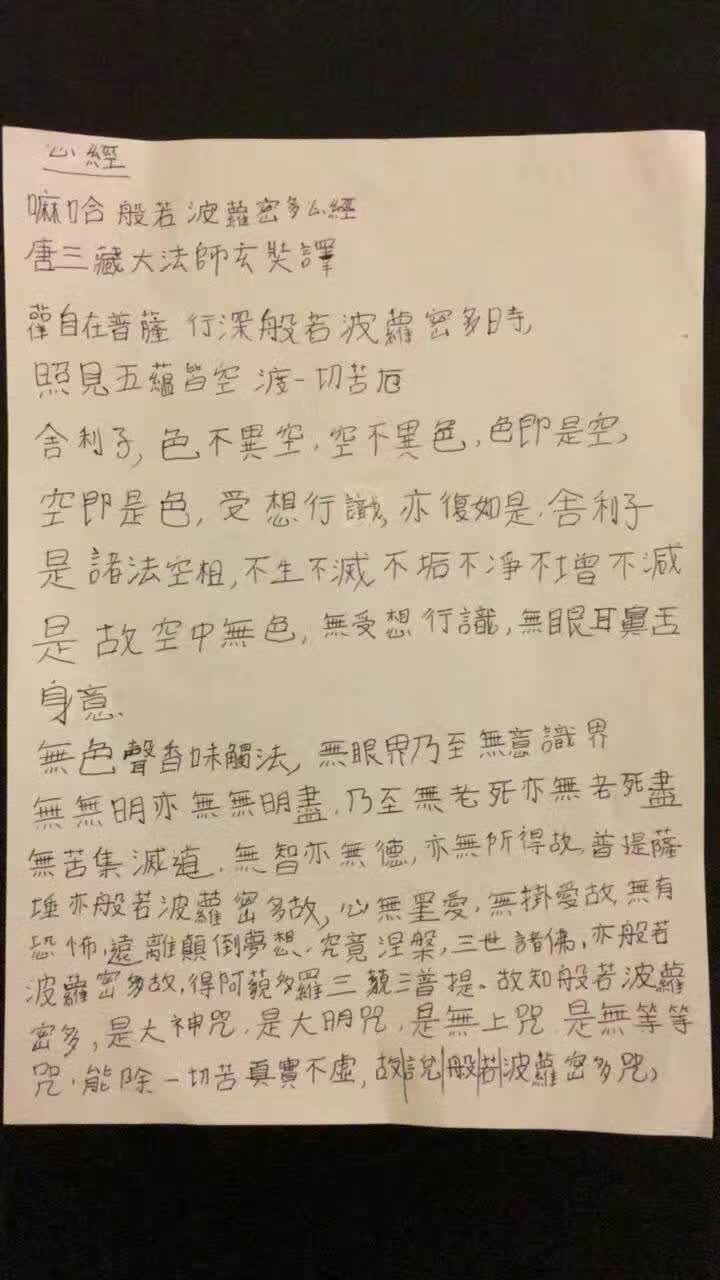 心經
嘛哈 般若波蘿密多心經
唐三藏大法師玄奘譯
觀自在普薩 行深般若波蘿密多時,
照見五蘊皆空 渡一切苦厄
舍利子, 色不異空, 空不異色, 色即是空,
空即是色, 受想行識, 亦復如是. 舍利子
是諸法空相, 不生不滅 不垢不淨不增不減
是故空中無色, 無受想行識, 無眼耳鼻舌
身意.
無色聲香味觸法, 無眼界乃至無意識界
無無明亦無無明盡, 乃至無老死亦無老死盡
無苦集滅道, 無智亦無德, 亦無所得故, 普提薩
埵亦般若波蘿密多故, 心無罣愛, 無掛愛故, 無有
恐怖, 遠離顛倒夢想, 究竟涅槃, 三世諸佛, 亦般若
波蘿密多故, 得阿藐多羅三藐三普提。故知般若波蘿
密多, 是大神咒, 是大明咒, 是無上咒 是無等等
咒, 能除一切苦真實不虛, 故|說|般|若|波蘿密多咒,